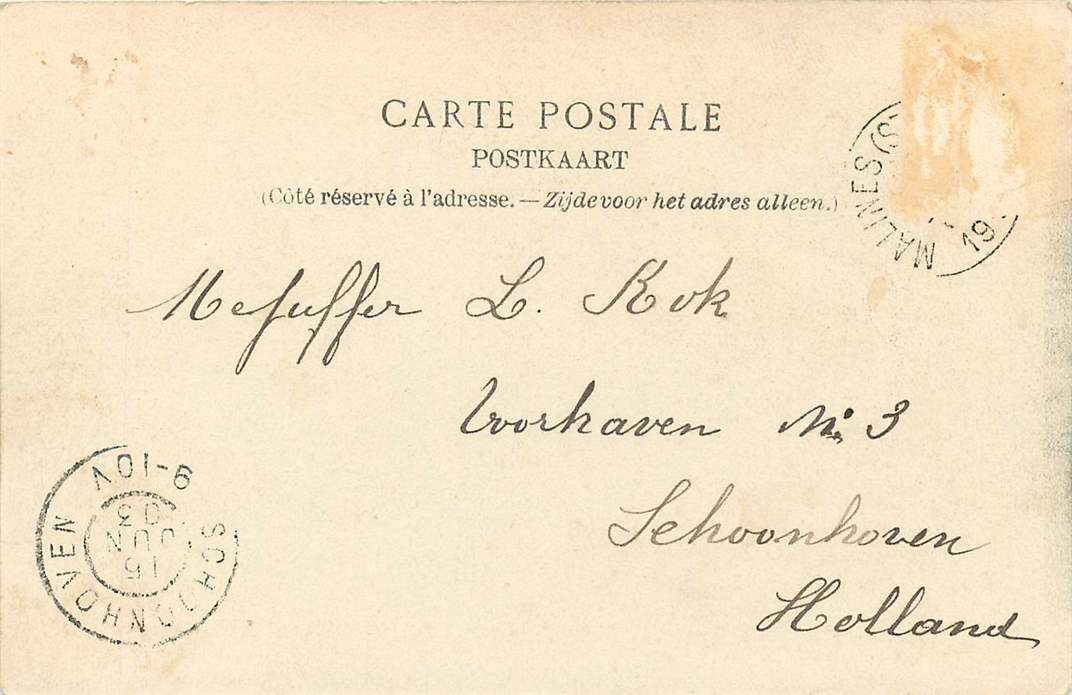 CARTE POSTALE
POSTKAART
(Côté réservé à l'adresse. — Zijde voor het adres alleen.)
MALINES (S
19
Mejuffer L. Kok
Voorhaven No. 3
Schoonhoven
Holland
SCHOONHOVEN
9-10V
15
JUN
03